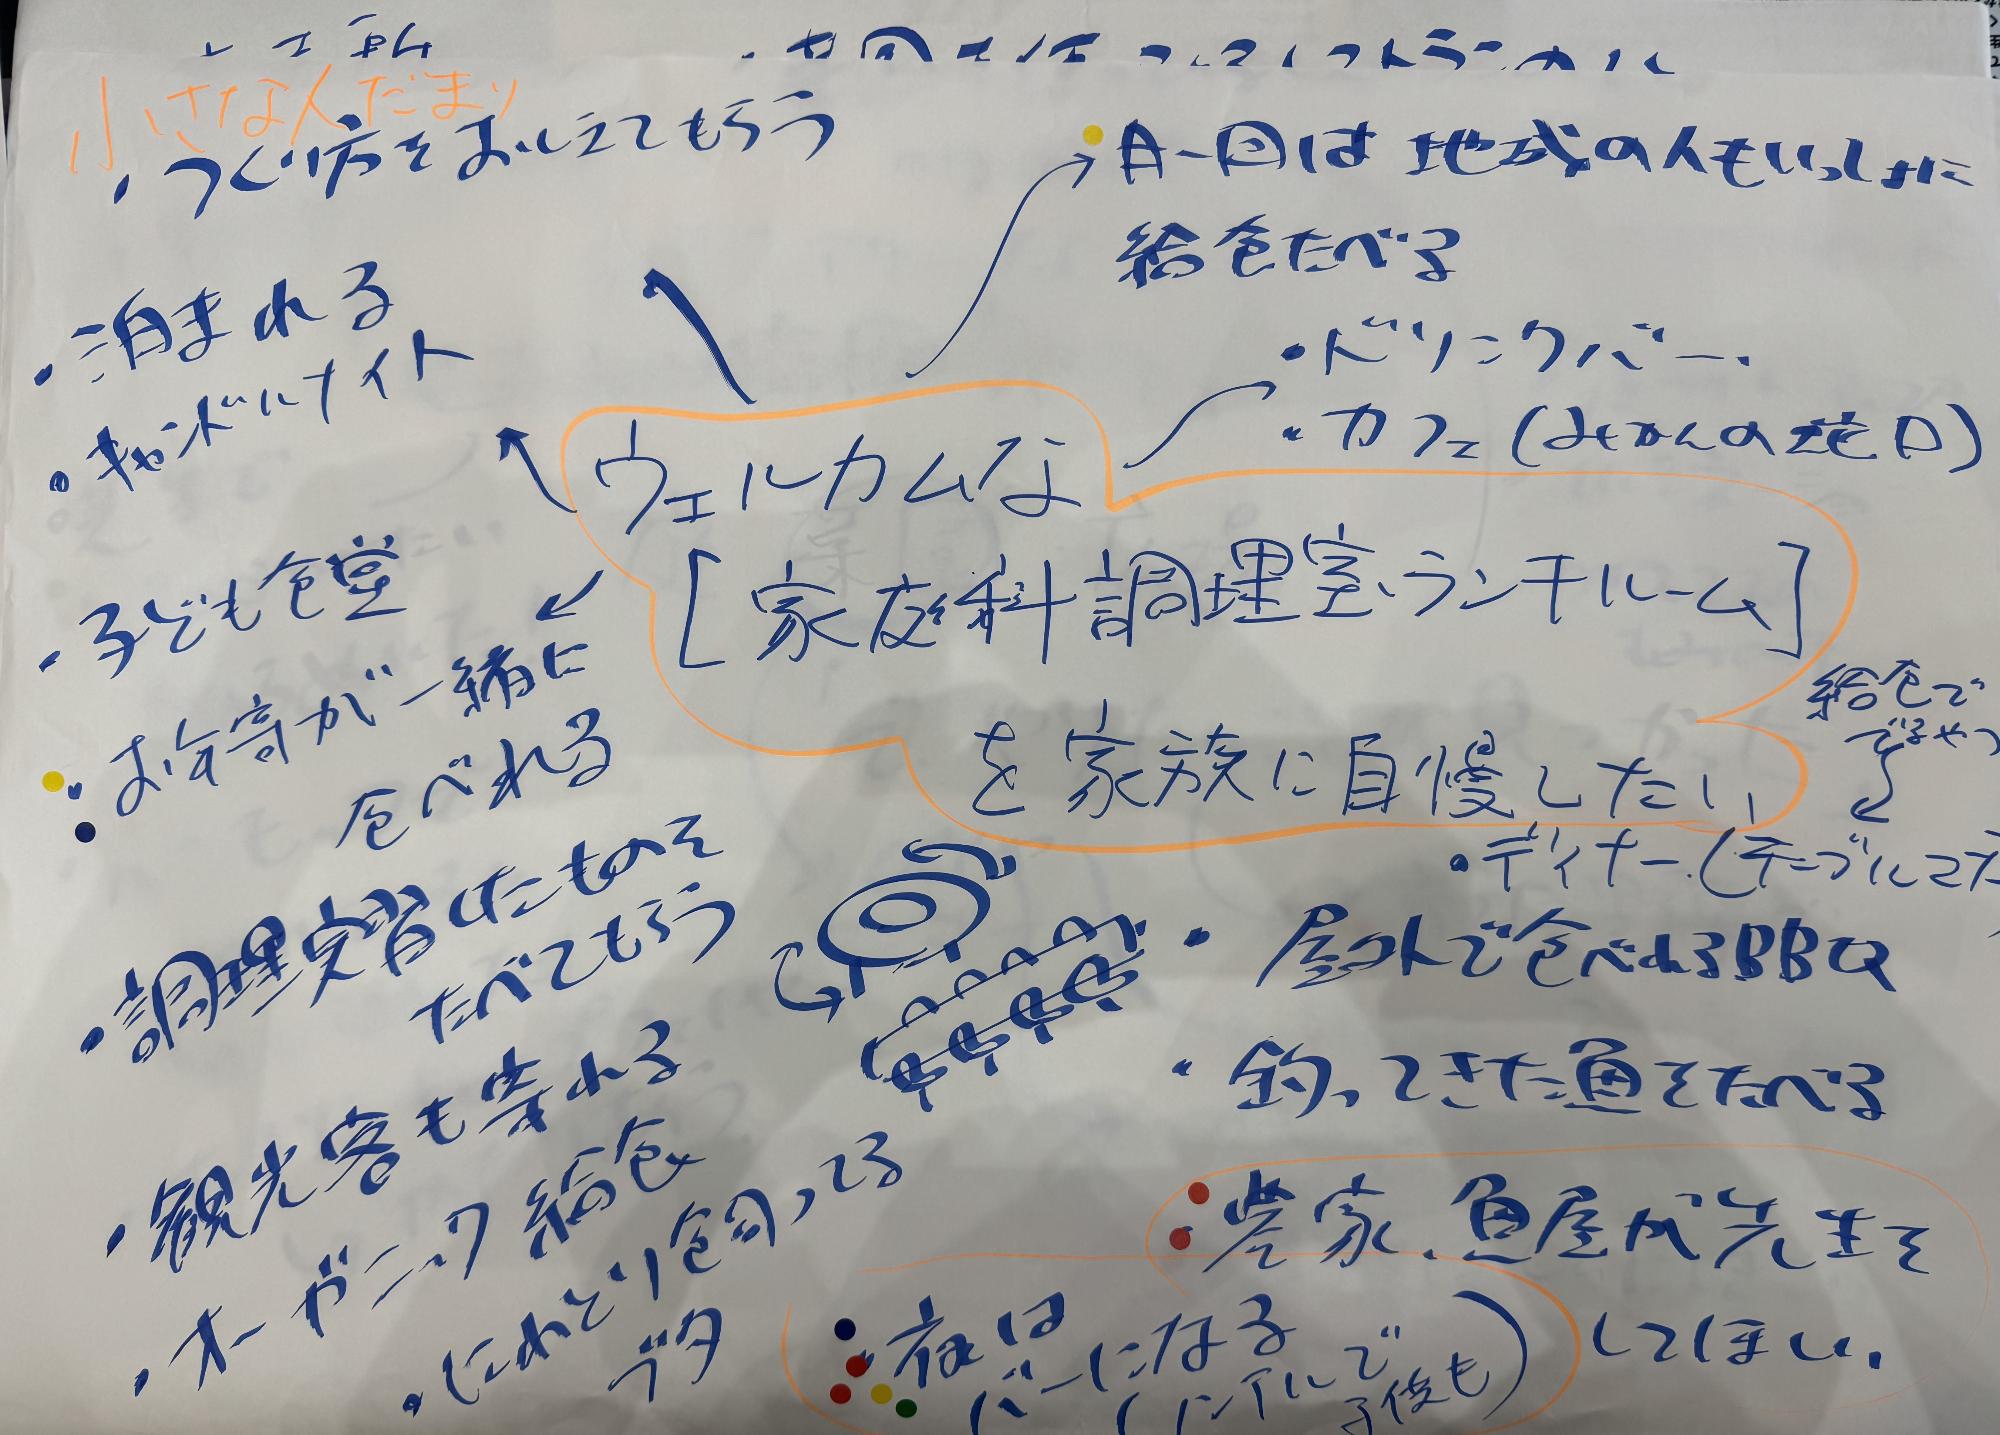 小さな人だまり
・つくり方をおしえてもらう
月一回は地域の人もいっしょに
給食たべる
・ドリンクバー
・カフェ(みかんの花口)
・泊まれる
・キャンドルナイト
ウェルカムな
[家庭科調理室・ランチルーム]
を家族に自慢したい
・子ども食堂
・お年寄が一緒に
食べれる
・調理実習したものを
たべてもらう
・観光客も寄れる
・オーガニック給食
・にわとり飼ってる
ブタ
給食で
でるやつ
・ディナー(テーブルマナ
・屋外で食べれるBBQ
・釣ってきた魚をたべる
・農家、魚屋が先生を
してほしい。
・夜は
バーになる
(ノンアルで
子供も)